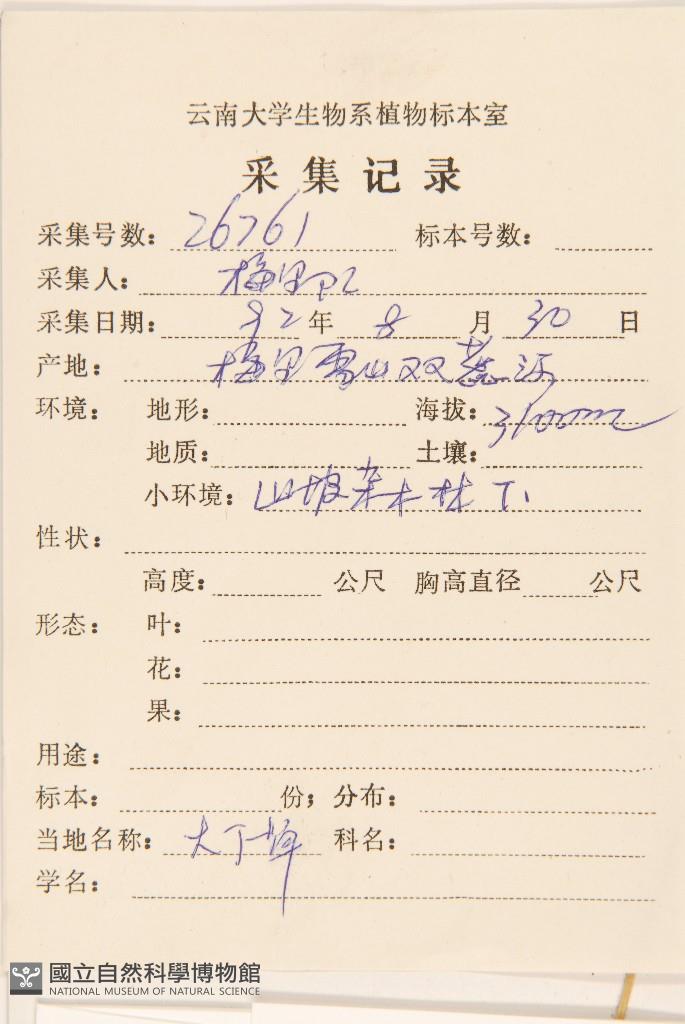 云南大学生物系植物标本室
采集记录
采集号数: 26761 标本号数:
采集人: 梅里
采集日期: 92年 8 月 30 日
产地: 梅里雪山双
环境: 地形: 海拔: 3100m
地质: 土壤:
小环境: 山坡杂木林下.
性状:
高度: 公尺 胸高直径 公尺
形态: 叶:
花:
果:
用途:
标本: 份; 分布:
当地名称: 大丁 科名:
学名:
國立自然科學博物館
NATIONAL MUSEUM OF NATURAL SCIENCE